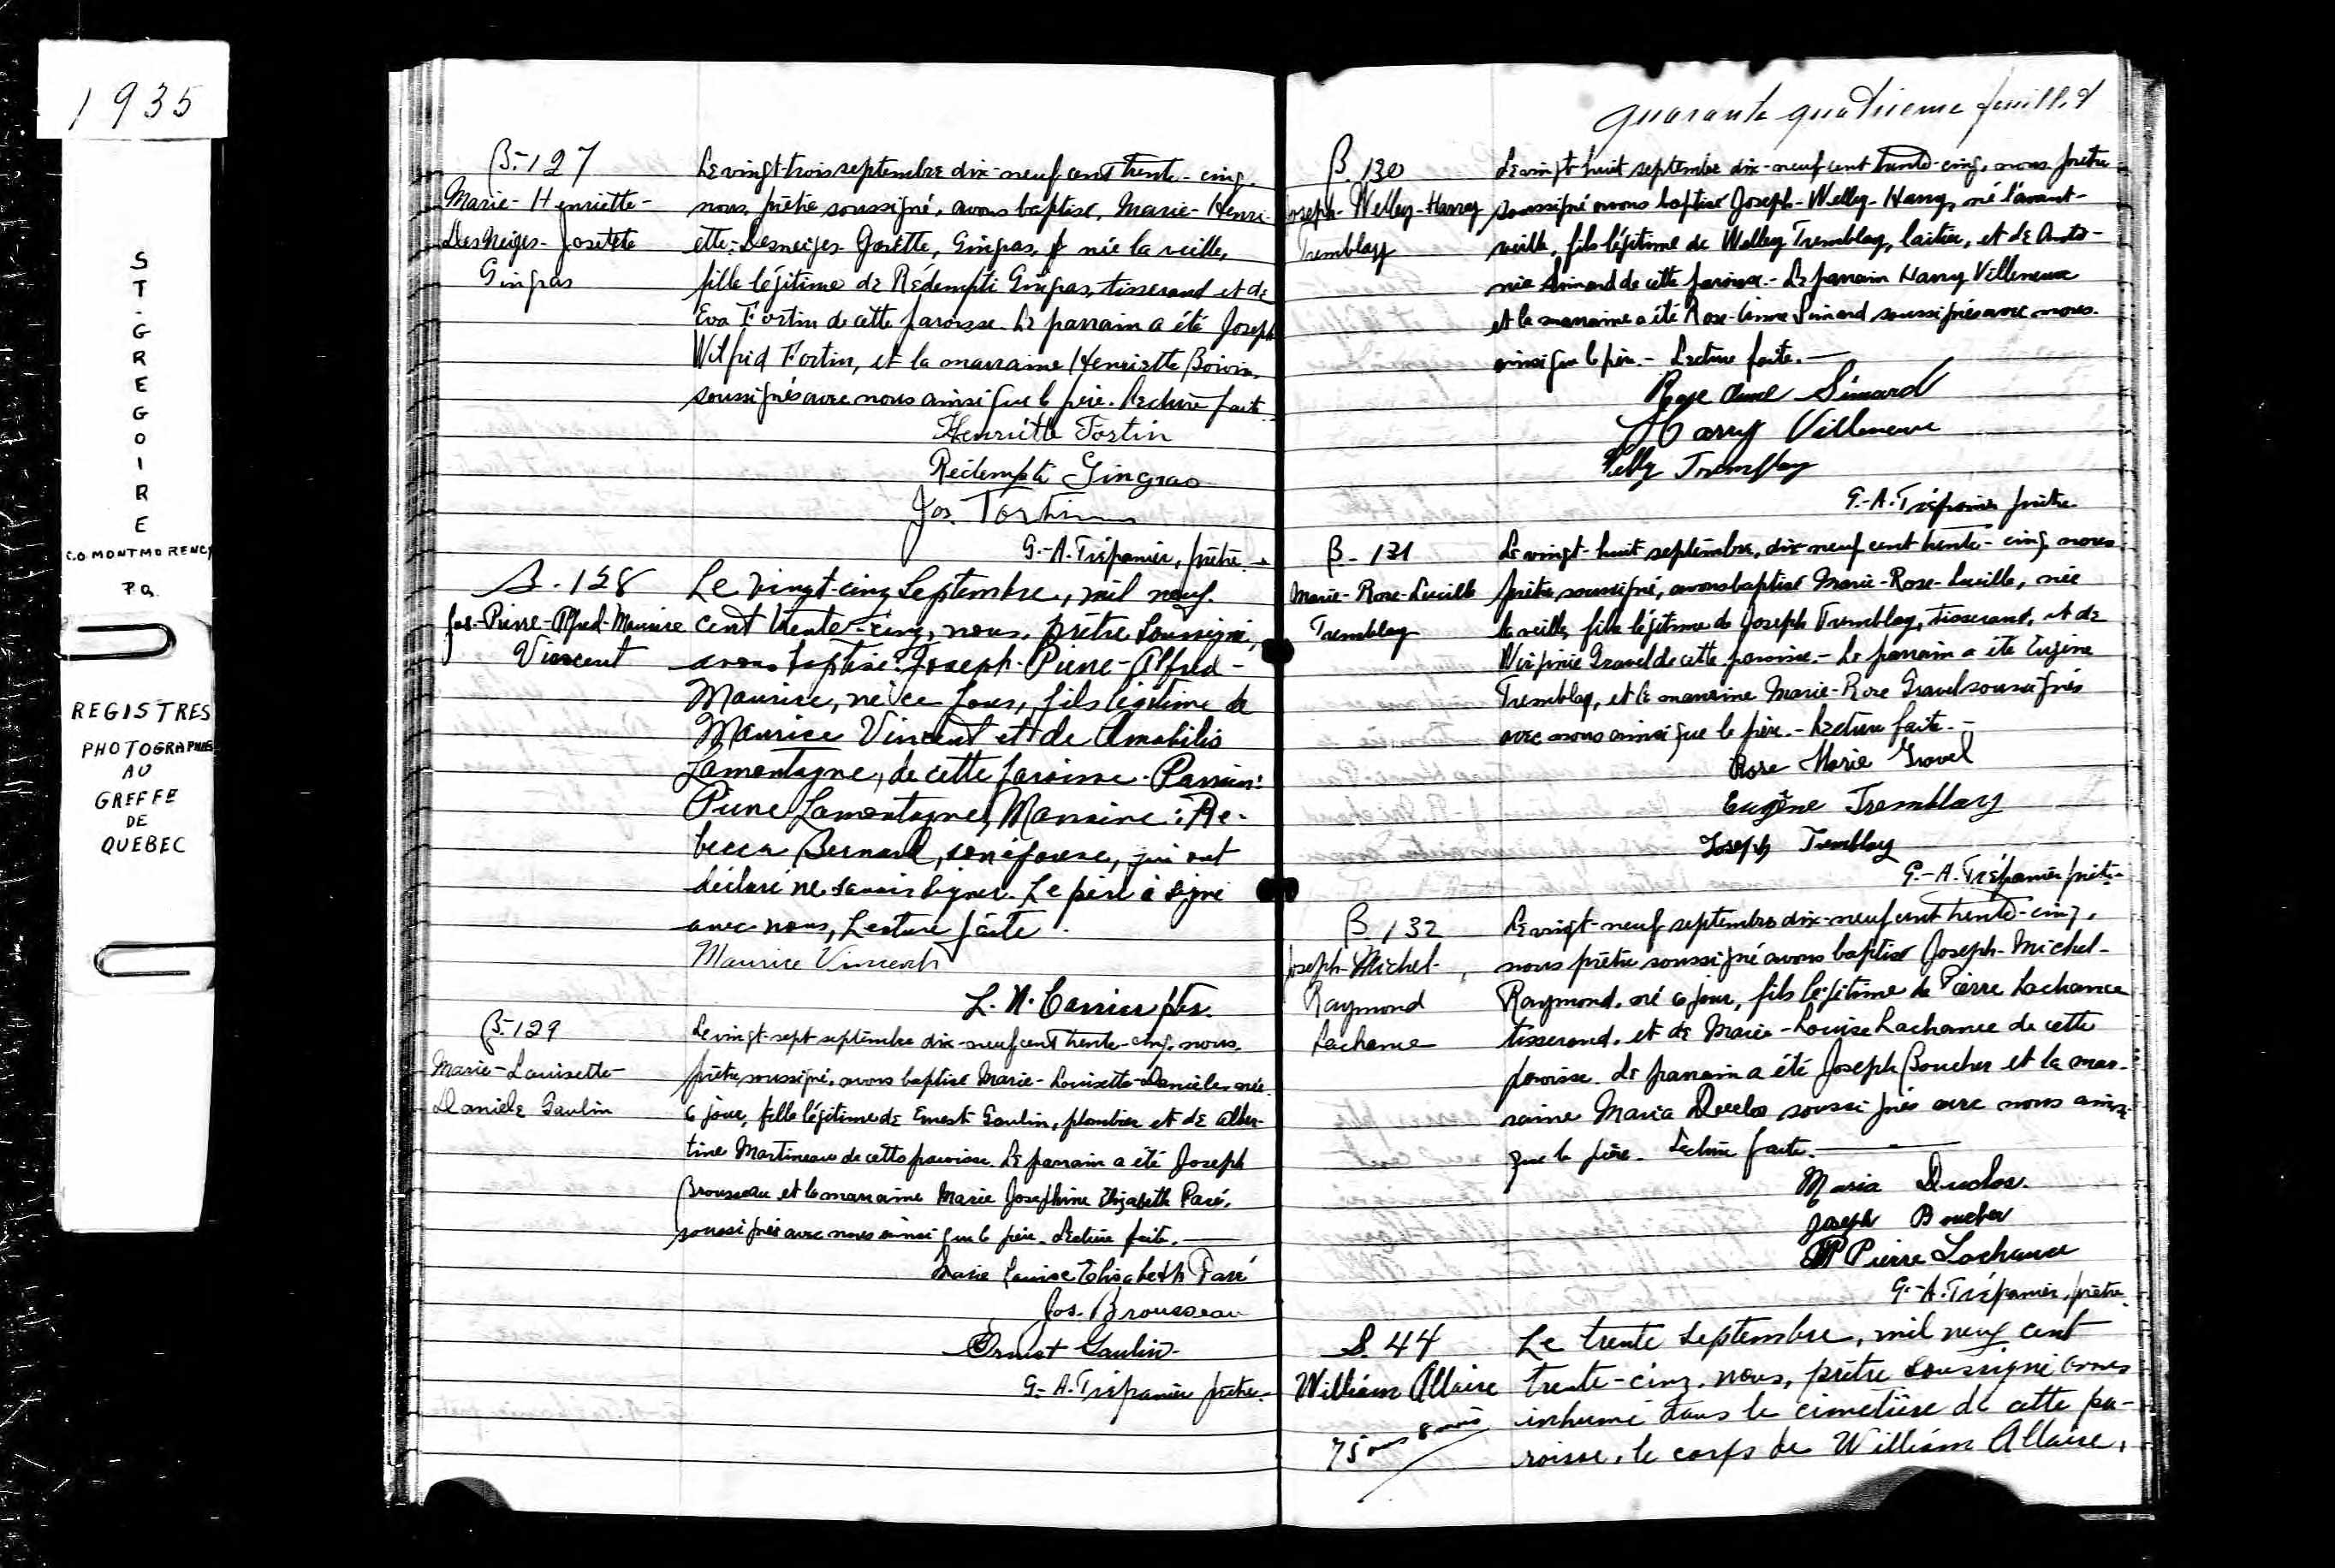 1935
ST-GREGOIRE
CO. MONTMORENCY
P.Q.
REGISTRES
PHOTOGRAPHIES
AU
GREFFE
DE
QUEBEC
B.-127
Marie-Henriette-
DesNeiges-Josette
Gingras
Le vingt-trois septembre dix-neuf cent trente-cinq.
nous, prêtre soussigné, avons baptisé, Marie-Henri-
ette-Desneiges-Josette, Gingras, née la veille,
fille légitime de Rédempti Gingras, tisserand et de
Eva Fortin de cette paroisse. Le parrain a été Joseph
Wilfrid Fortin, et la marraine Henriette Boivin,
soussignés avec nous ainsi que le père. Lecture faite.
Henriette Fortin
Rédempti Gingras
Jos. Fortin
G.-A. Trépanier, prêtre.
B.-128
Jos-Pierre-Alfred-Maurice
Vincent
Le vingt-cinq Septembre, mil neuf
cent trente-cinq, nous, prêtre soussigné,
avons baptisé Joseph-Pierre-Alfred-
Maurice, né ce jour, fils légitime de
Maurice Vincent et de Amabilis
Lamontagne, de cette paroisse. Parrain:
Pierre Lamontagne, Marraine: Re-
becca Bernard, son épouse, qui ont
déclaré ne savoir signer. Le père a signé
avec nous, Lecture faite.
Maurice Vincent
L. N. Carrier ptr.
B.-129
Marie-Louisette-
Danièle Gaulin
Le vingt-sept septembre dix-neuf cent trente-cinq, nous,
prêtre soussigné, avons baptisé Marie-Louisette-Danièle, née
ce jour, fille légitime de Ernest Gaulin, plombier et de Alber-
tine Martineau de cette paroisse. Le parrain a été Joseph
Brousseau et la marraine Marie Josephine Elizabeth Paré,
soussignés avec nous ainsi que le père. Lecture faite.
Marie Louise Elisabeth Paré
Jos. Brousseau
Ernest Gaulin
G.-A. Trépanier prêtre.
quarante quatrieme feuillet
B. 130
Joseph-Welley-Harry
Tremblay
Le vingt-huit septembre dix-neuf cent trente-cinq, nous prêtre
soussigné avons baptisé Joseph-Welley-Harry, né l'avant-
veille, fils légitime de Welley Tremblay, laitier, et de Anto-
nia Simard de cette paroisse.- Le parrain Harry Villeneuve
et la marraine a été Rose-Aimée Simard soussignés avec nous.
ainsi que le père.- Lecture faite.-
Rose Aimé Simard
Harry Villeneuve
Welly Tremblay
G.-A. Trépanier prêtre.
B-131
Marie-Rose-Lucille
Tremblay
Le vingt-huit septembre, dix-neuf cent trente-cinq nous
prêtre soussigné, avons baptisé Marie-Rose-Lucille, née
la veille, fille légitime de Joseph Tremblay, tisserand, et de
Virginie Gravel de cette paroisse.- Le parrain a été Eugène
Tremblay, et la marraine Marie-Rose Gravel soussignés
avec nous ainsi que le père.- Lecture faite.-
Rose Marie Gravel
Eugène Tremblay
Joseph Tremblay
G.-A. Trépanier prêtre
B. 132
Joseph-Michel-
Raymond
Lachance
Le vingt-neuf septembre dix-neuf cent trente-cinq,
nous prêtre soussigné avons baptisé Joseph-Michel-
Raymond, né ce jour, fils légitime de Pierre Lachance
tisserand, et de Marie-Louise Lachance de cette
paroisse. Le parrain a été Joseph Boucher et la mar-
raine Maria Duclos soussignés avec nous ainsi
que le père. Lecture faite.
Maria Duclos.
Joseph Boucher
Pierre Lachance
G.-A. Trépanier, prêtre.
S. 44
William Allaire
75 ans 8 mois
Le trente septembre, mil neuf cent
trente-cinq, nous, prêtre soussigné avons
inhumé dans le cimetière de cette pa-
roisse, le corps de William Allaire,